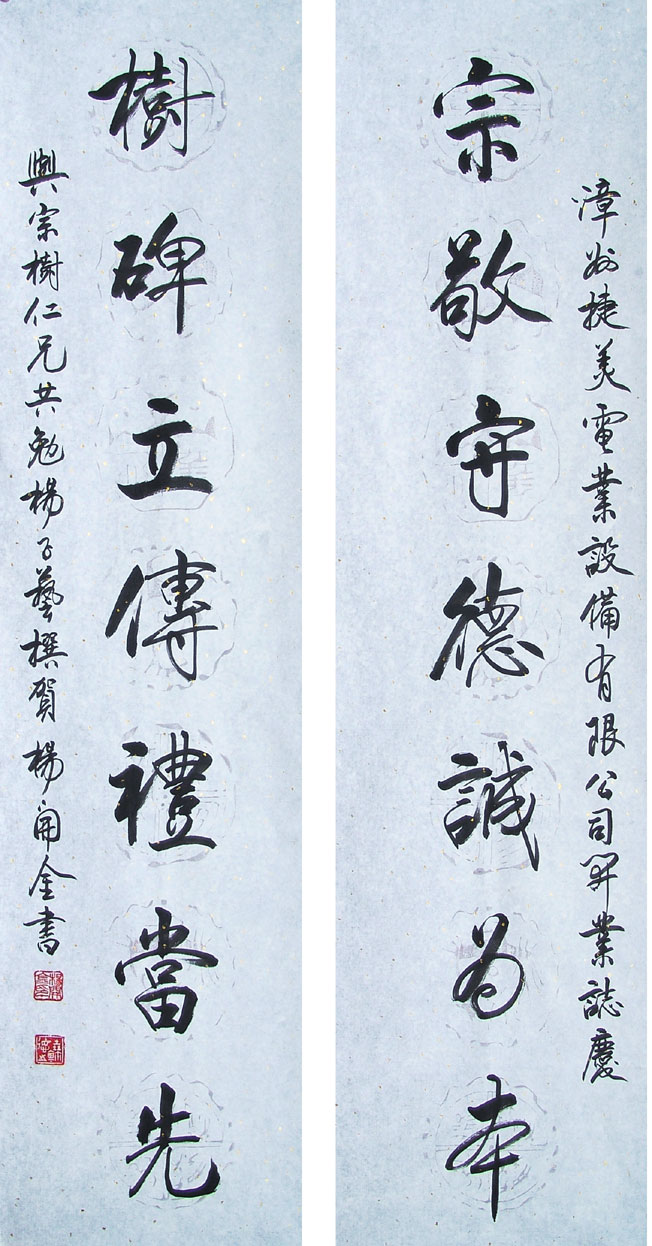 漳州捷美電業設備有限公司開業誌慶
宗敬守德誠為本
樹碑立傳禮當先
與宗樹仁兄共勉楊子藝撰賀楊開金書